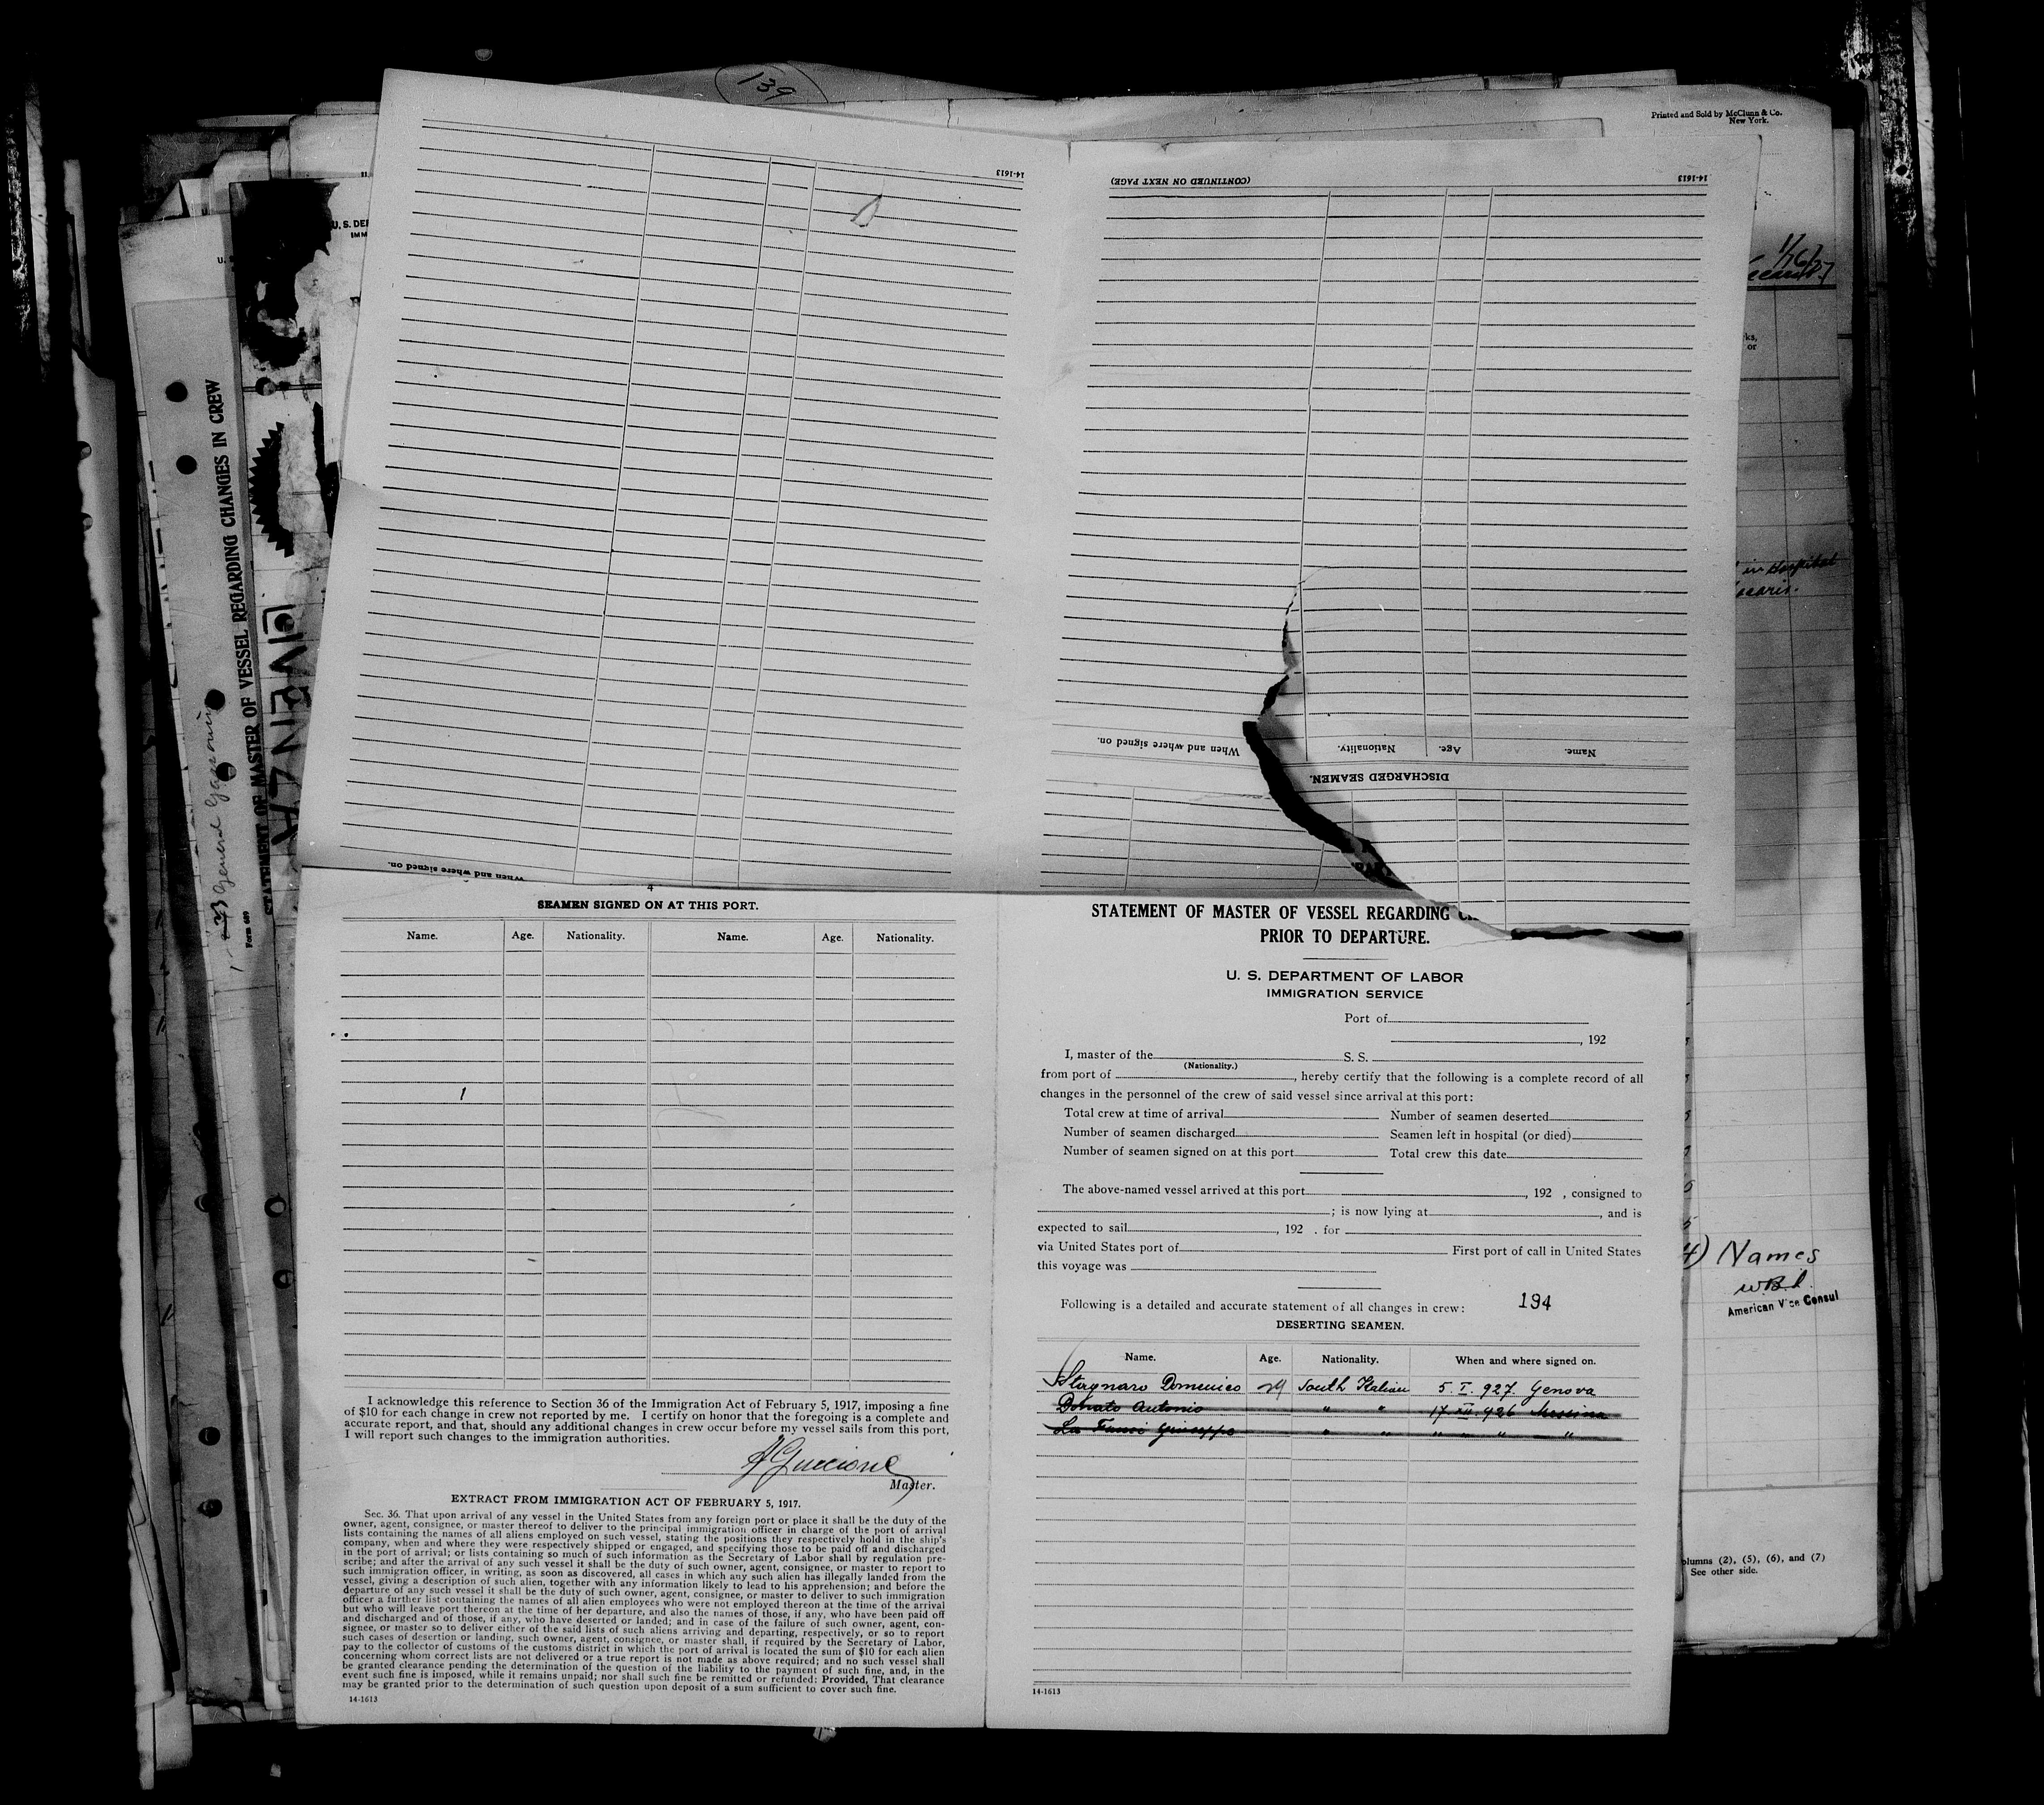 139
Printed and Sold by McClunn & Co.
New York.
14-1613
(CONTINUED ON NEXT PAGE)
14-1613
U. S. DE
IMM
1/6/27
ks,
or
in Hospital
STATEMENT OF MASTER OF VESSEL REGARDING CHANGES IN CREW
General
Form 689
STATEMENT OF MASTER OF VESSEL REGARDING CHANGES IN CREW
When and where signed on.
Nationality.
Age.
Name.
DISCHARGED SEAMEN.
When and where signed on.
4
SEAMEN SIGNED ON AT THIS PORT.
Name. Age. Nationality. Name. Age. Nationality.
I acknowledge this reference to Section 36 of the Immigration Act of February 5, 1917, imposing a fine
of $10 for each change in crew not reported by me. I certify on honor that the foregoing is a complete and
accurate report, and that, should any additional changes in crew occur before my vessel sails from this port,
I will report such changes to the immigration authorities.
Guccione
Master.
EXTRACT FROM IMMIGRATION ACT OF FEBRUARY 5, 1917.
Sec. 36. That upon arrival of any vessel in the United States from any foreign port or place it shall be the duty of the
owner, agent, consignee, or master thereof to deliver to the principal immigration officer in charge of the port of arrival
lists containing the names of all aliens employed on such vessel, stating the positions they respectively hold in the ship's
company, when and where they were respectively shipped or engaged, and specifying those to be paid off and discharged
in the port of arrival; or lists containing so much of such information as the Secretary of Labor shall by regulation pre-
scribe; and after the arrival of any such vessel it shall be the duty of such owner, agent, consignee, or master to report to
such immigration officer, in writing, as soon as discovered, all cases in which any such alien has illegally landed from the
vessel, giving a description of such alien, together with any information likely to lead to his apprehension; and before the
departure of any such vessel it shall be the duty of such owner, agent, consignee, or master to deliver to such immigration
officer a further list containing the names of all alien employees who were not employed thereon at the time of the arrival
but who will leave port thereon at the time of her departure, and also the names of those, if any, who have been paid off
and discharged and of those, if any, who have deserted or landed; and in case of the failure of such owner, agent, con-
signee, or master so to deliver either of the said lists of such aliens arriving and departing, respectively, or so to report
such cases of desertion or landing, such owner, agent, consignee, or master shall, if required by the Secretary of Labor,
pay to the collector of customs of the customs district in which the port of arrival is located the sum of $10 for each alien
concerning whom correct lists are not delivered or a true report is not made as above required; and no such vessel shall
be granted clearance pending the determination of the question of the liability to the payment of such fine, and, in the
event such fine is imposed, while it remains unpaid; nor shall such fine be remitted or refunded: Provided, That clearance
may be granted prior to the determination of such question upon deposit of a sum sufficient to cover such fine.
14-1613
STATEMENT OF MASTER OF VESSEL REGARDING C
PRIOR TO DEPARTURE.
U. S. DEPARTMENT OF LABOR
IMMIGRATION SERVICE
Port of
, 192
I, master of the S. S.
(Nationality.)
from port of , hereby certify that the following is a complete record of all
changes in the personnel of the crew of said vessel since arrival at this port:
Total crew at time of arrival Number of seamen deserted
Number of seamen discharged Seamen left in hospital (or died)
Number of seamen signed on at this port Total crew this date
The above-named vessel arrived at this port , 192 , consigned to
; is now lying at , and is
expected to sail , 192 . for
via United States port of First port of call in United States
this voyage was
Following is a detailed and accurate statement of all changes in crew: 194
DESERTING SEAMEN.
Name. Age. Nationality. When and where signed on.
Domenico 29 South Italian 5. I. 927. Genova
Antonio " " 17. XII. 926 Messina
Giuseppe " " " " "
14-1613
4) Names
American Vice Consul
olumns (2), (5), (6), and (7)
See other side.